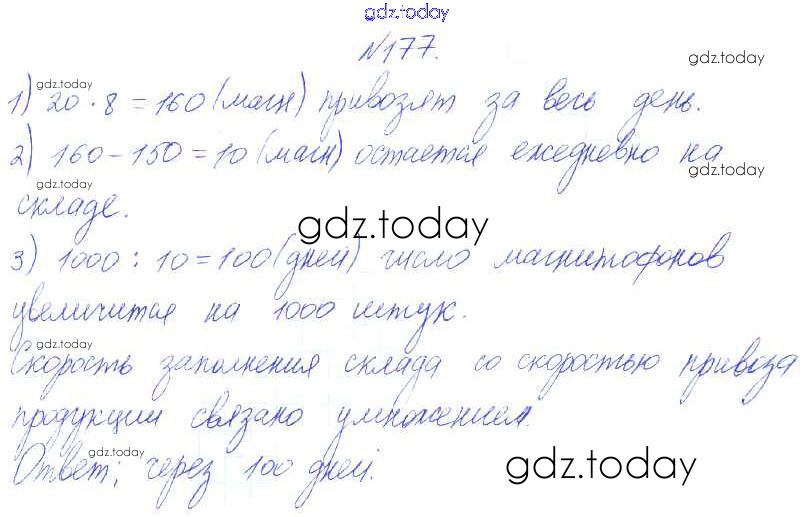 gdz.today
№177.
gdz.today
gdz.today
1) 20 · 8 = 160 (магн) привозят за весь день.
2) 160 - 150 = 10 (магн) остается ежедневно на
gdz.today
gdz.today
складе.
gdz.today
3) 1000 : 10 = 100 (дней) число магнитофонов
увеличится на 1000 штук.
gdz.today
Скорость заполнения склада со скоростью привоза
продукции связано умножением.
gdz.today
Ответ; через 100 дней.
gdz.today